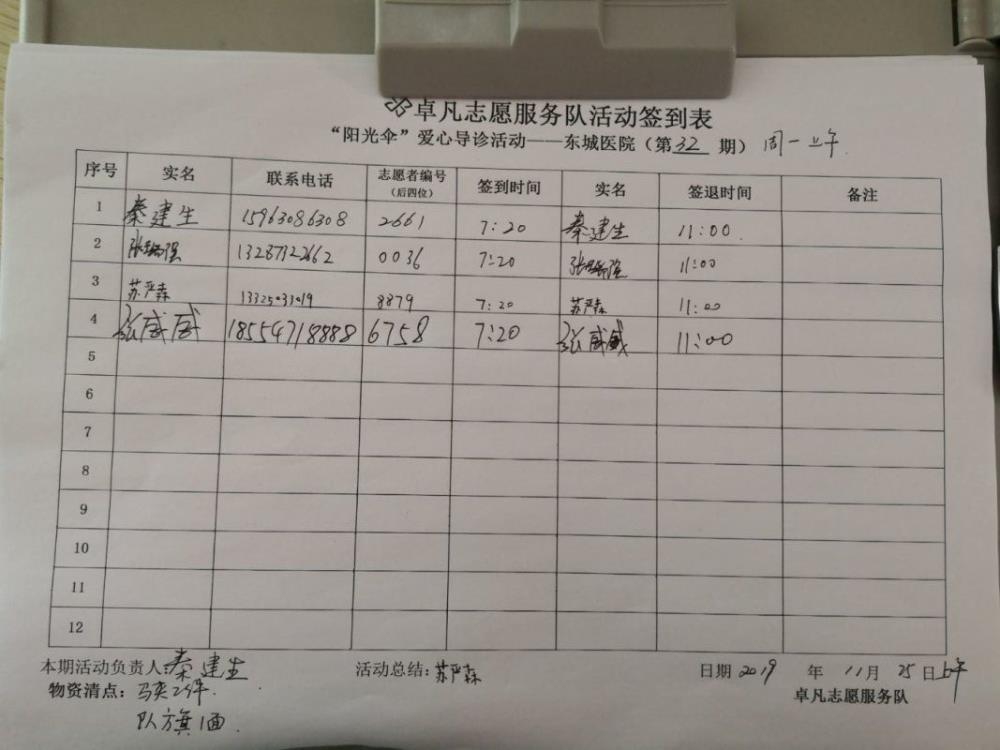 卓凡志愿服务队活动签到表
“阳光伞”爱心导诊活动——东城医院（第32期） 周一上午
序号 实名 联系电话 志愿者编号（后四位） 签到时间 实名 签退时间 备注
1 秦建生 15963086308 2661 7:20 秦建生 11:00
2 13287322662 0036 7:20 11:00
3 苏严森 13325033019 8879 7:20 苏严森 11:00
4 张威威 18554718888 6758 7:20 张威威 11:00
5
6
7
8
9
10
11
12
本期活动负责人:秦建生 活动总结:苏严森 日期 2019 年 11月 25日上午
物资清点：马夹25件. 卓凡志愿服务队
队旗1面